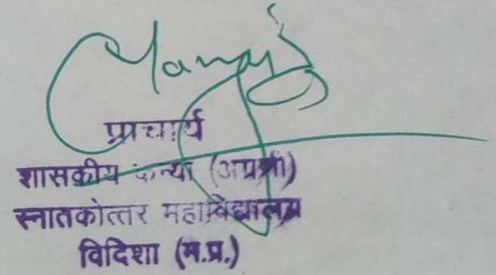 प्राचार्य
शासकीय कन्या (अग्रणी)
स्नातकोत्तर महाविद्यालय
विदिशा (म.प्र.)